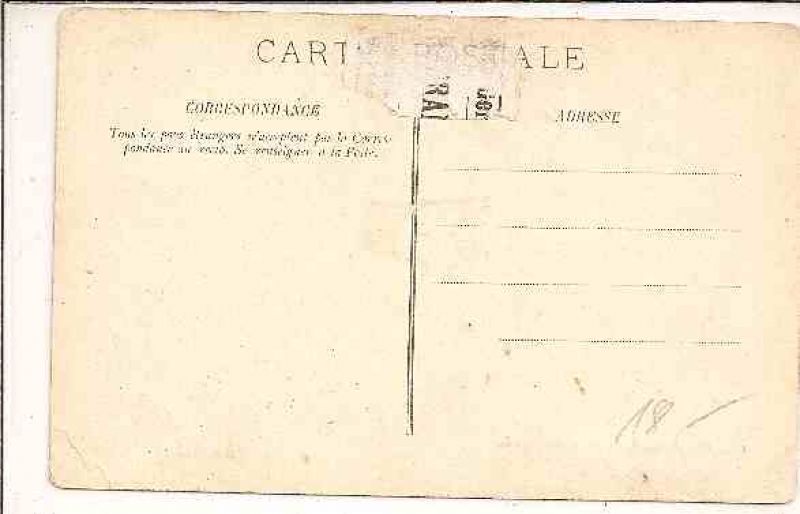 CARTE POSTALE
CORRESPONDANCE
Tous les pays étrangers n'acceptent pas la Corres-
pondance au verso. Se renseigner à la Poste.
ADRESSE
18 -